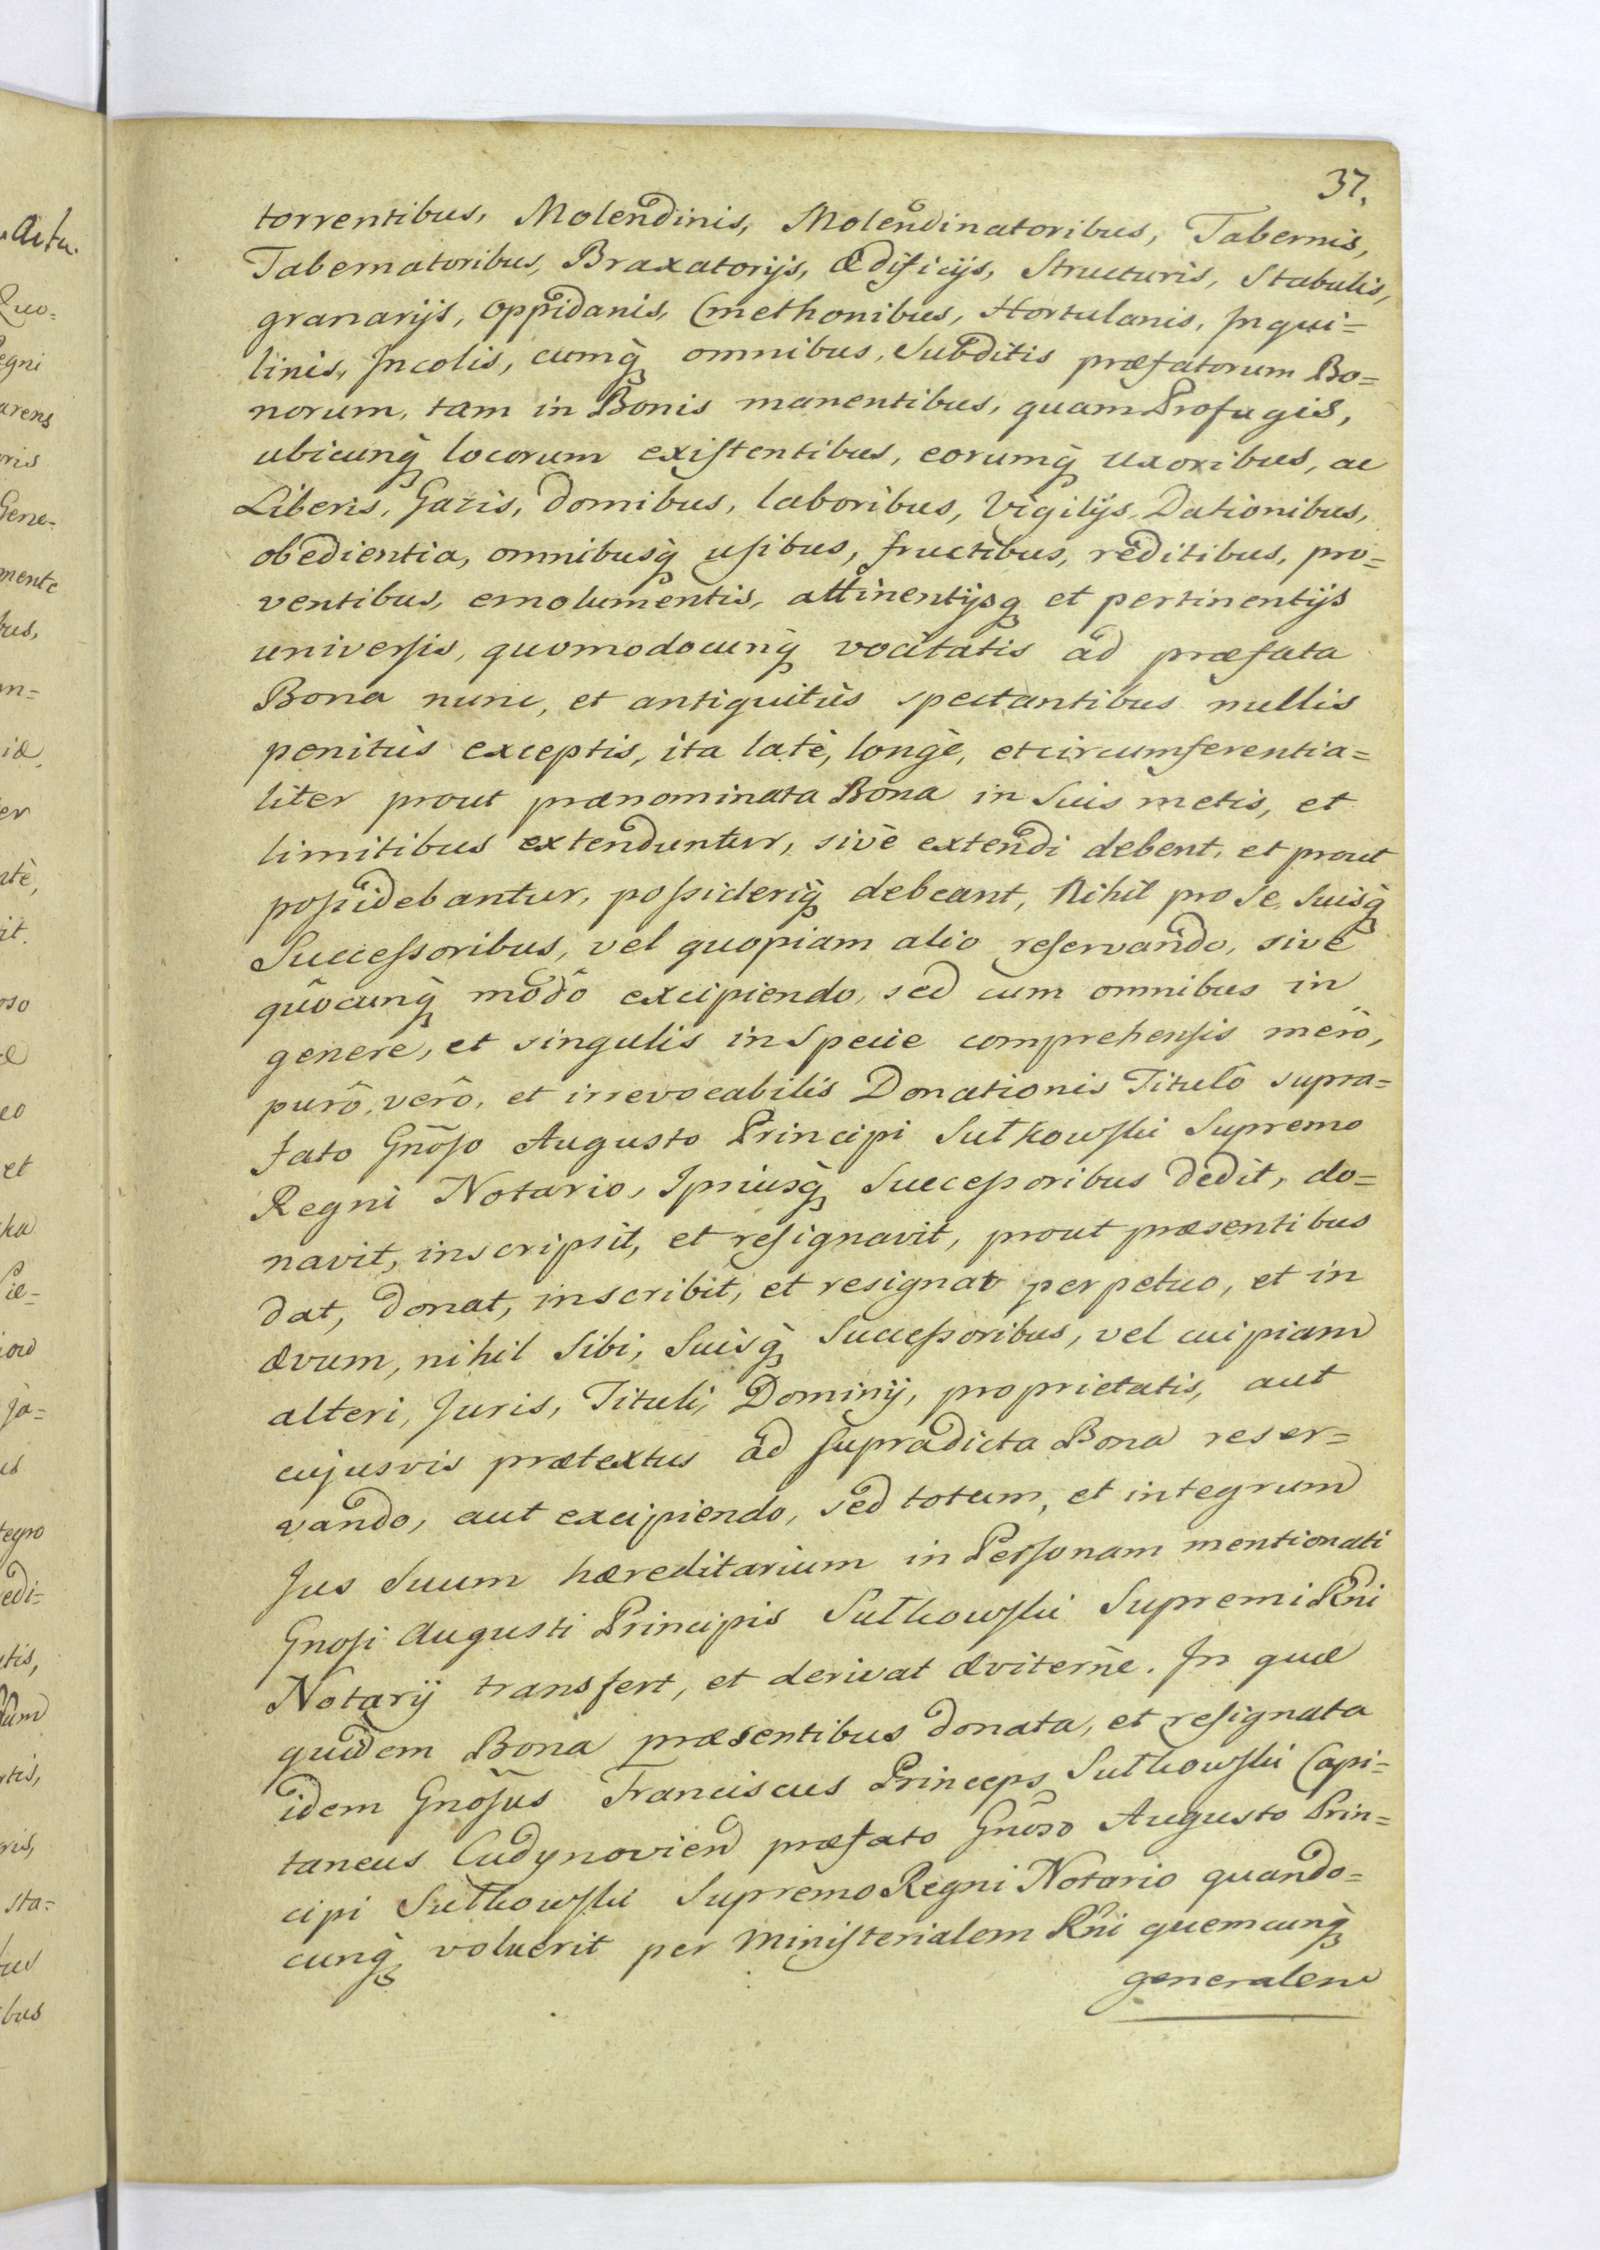 37.
torrentibus, Molendinis, Molendinatoribus, Tabernis,
Tabernatoribus, Braxatorijs, Ædificijs, Structuris, Stabulis,
granarijs, Oppidanis, Cmethonibus, Hortulanis, Inqui=
linis, Incolis, cumq̀ omnibus, Subditis præfatorum Bo=
norum, tam in Bonis manentibus, quam Profugis,
ubicunq̀ locorum existentibus, eorumq̀ uxoribus, ac
Liberis, Gazis, Domibus, laboribus, Vigilijs, Dationibus,
obedientia, omnibusq̀ usibus, fructibus, reditibus, pro=
ventibus, emolumentis, attinentijsq et pertinentijs
universis, quomodocunq̀ vocitatis ad præfata
Bona nunc, et antiquitùs spectantibus nullis
penitùs exceptis, ita latè, longè, et circumferentia=
liter prout prænominata Bona in Suis metis, et
limitibus extenduntur, sivè extendi debent, et prout
possidebantur, possideriq̀ debeant, Nihil pro Se, Suisq̀
Successoribus, vel quopiam alio reservando, sivè
quôcunq̀ modô excipiendo, sed cum omnibus in
genere, et singulis in Specie comprehensis merô,
purô, verô, et irrevocabilis Donationis Titulô supra=
fato Gnõso Augusto Principi Sułkowski Supremo
Regni Notario, Ipsiusq̀ Successoribus dedit, do=
navit, inscripsit, et resignavit, prout præsentibus
dat, donat, inscribit, et resignat perpetuo, et in
ævum, nihil Sibi, Suisq̀ Successoribus, vel cuipiam
alteri, Juris, Tituli, Dominij, proprietatis, aut
cujusvis prætextus ad supradicta Bona reser=
vando, aut excipiendo, sed totum, et integrum
Jus Suum hæreditarium in Personam mentionati
Gnosi Augusti Principis Sułkowski Supremi Rñi
Notarij transfert, et derivat æviternè. In quæ
quidem Bona præsentibus donata, et resignata
idem Gnõsus Franciscus Princeps Sułkowski Capi=
taneus Cudynovien præfato Gnõso Augusto Prin=
cipi Sułkowski Supremo Regni Notario quando=
cunq̀ voluerit per Ministerialem Rñi quemcunq̀
generalem